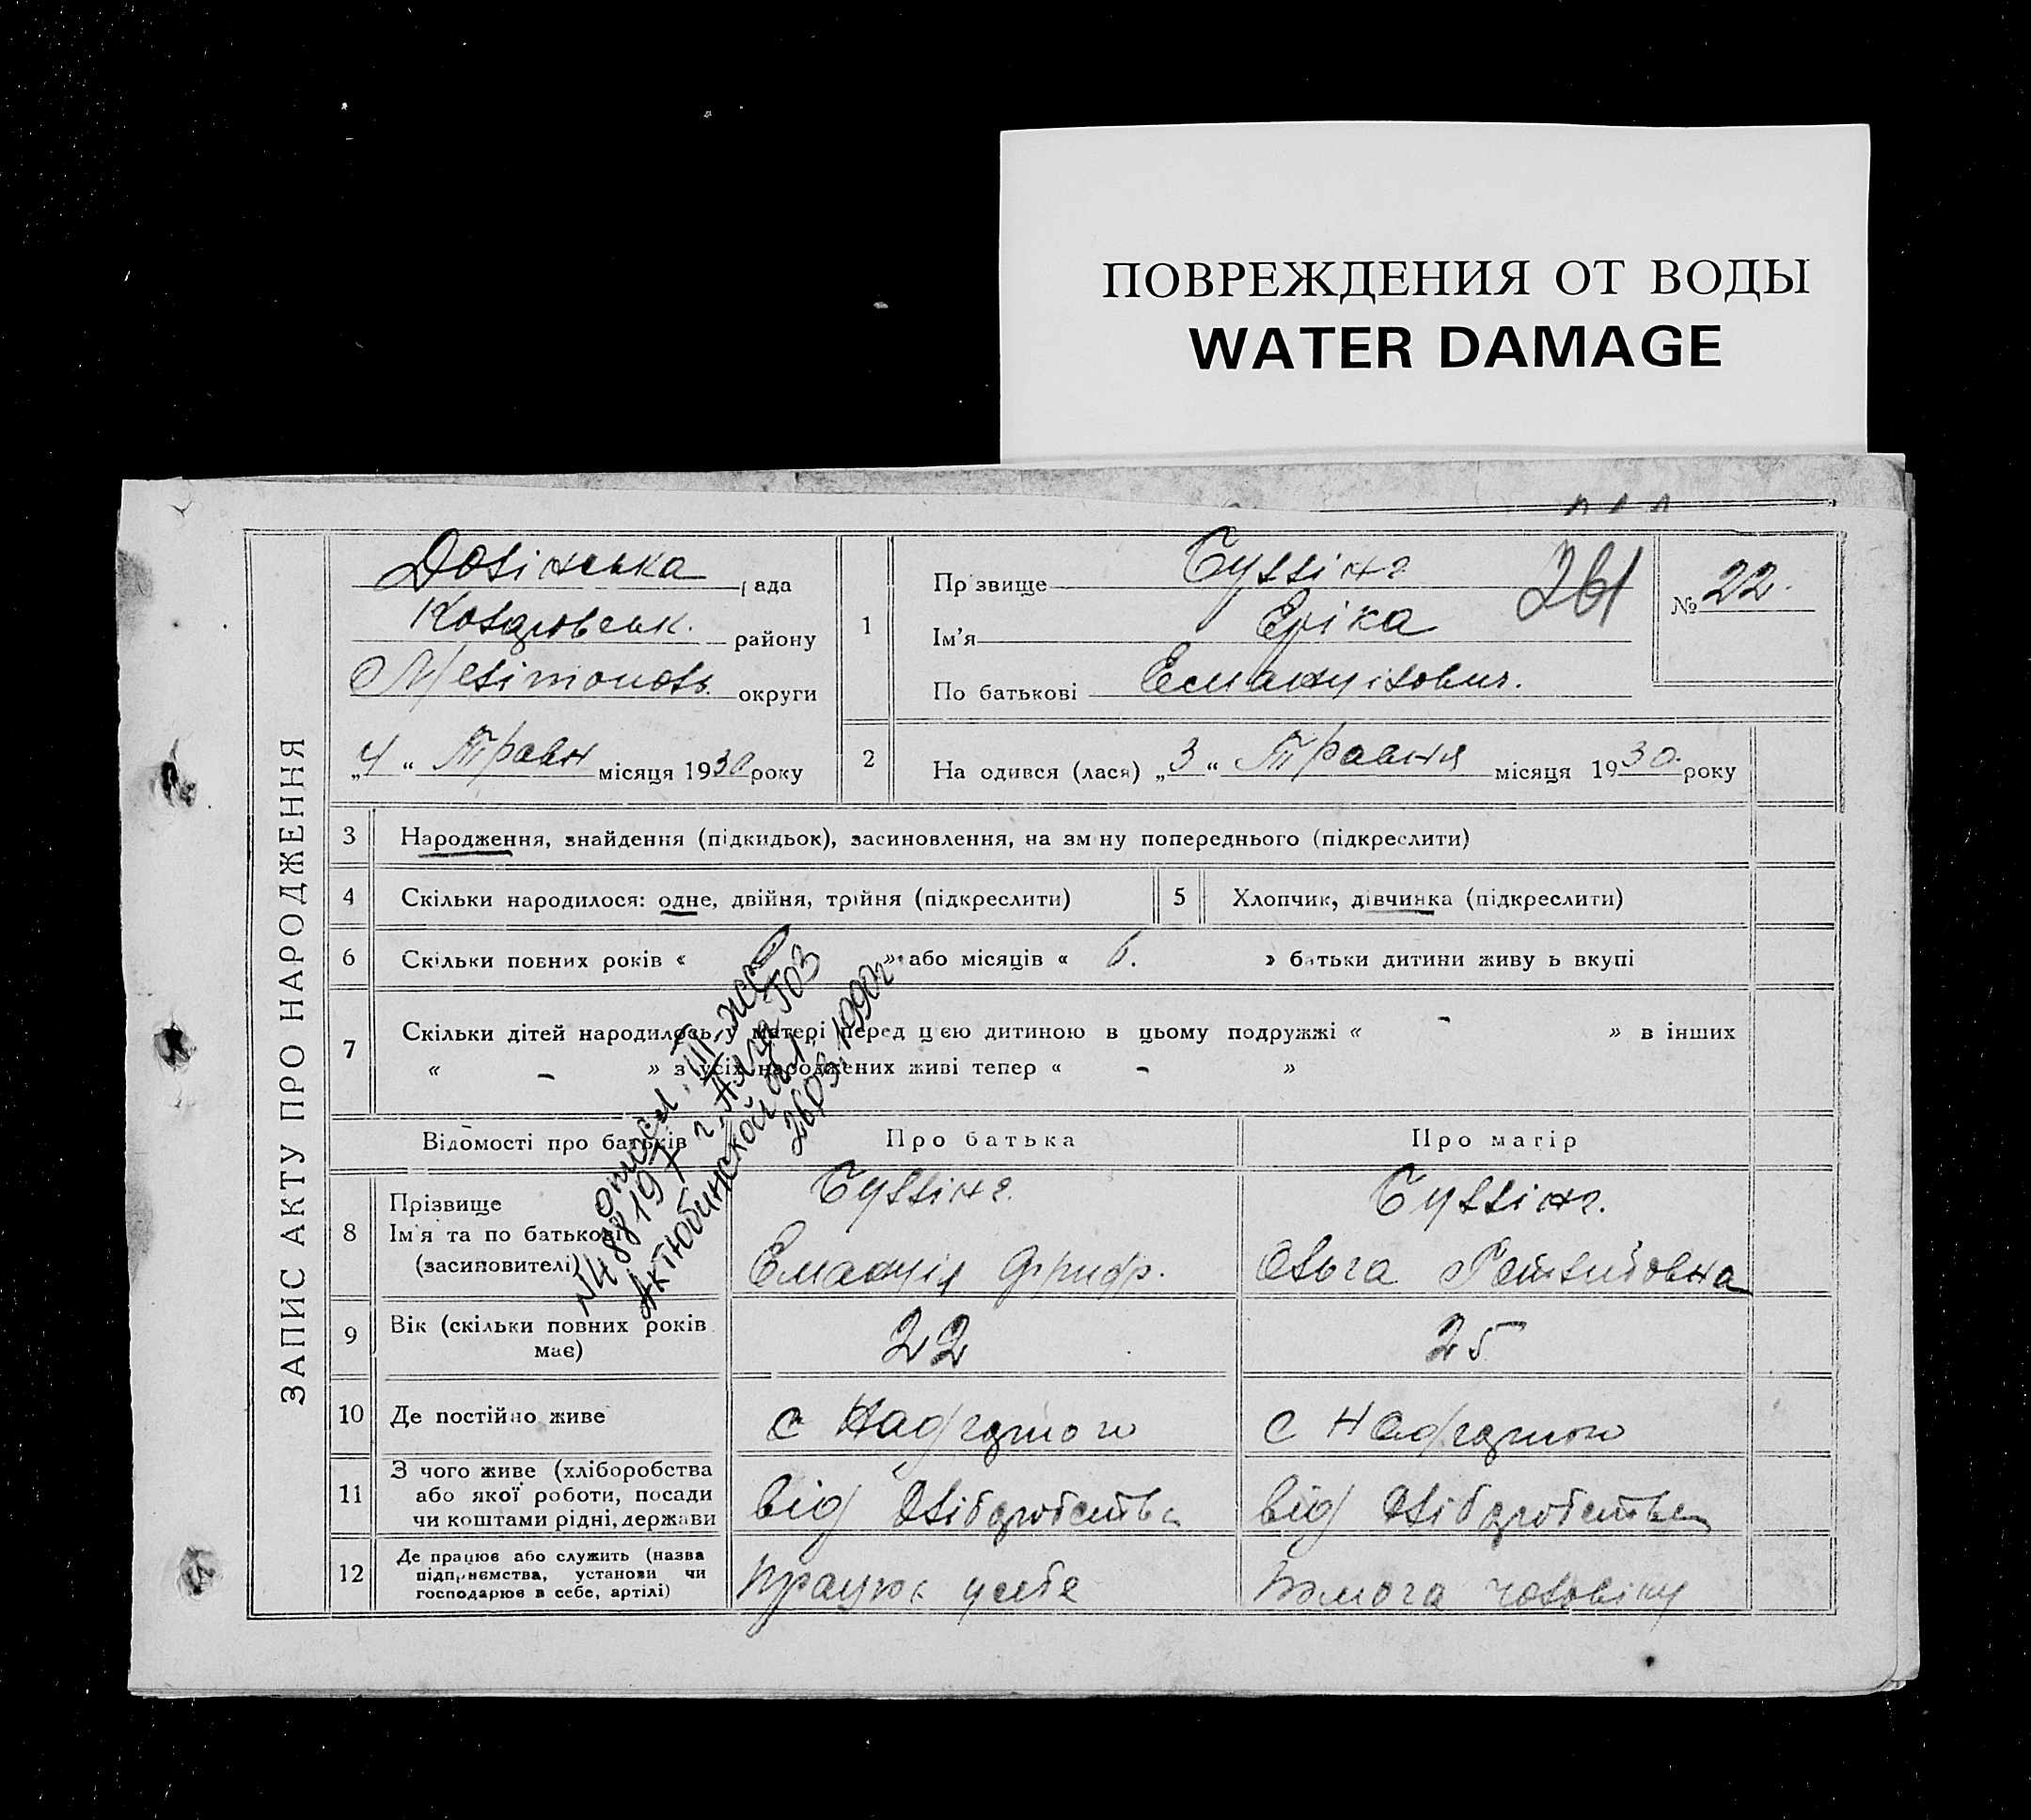 ПОВРЕЖДЕНИЯ ОТ ВОДЫ
WATER DAMAGE
ЗАПИС АКТУ ПРО НАРОДЖЕННЯ
Долінська рада
району
Мелітопольс. округи
„4“ Травн місяця 1930 року
1
Прізвище Гуллінг
261
№ 22.
Ім'я Еріка
По батькові Емануїлович.
2 Народився (лася) „3“ Травня місяця 1930 року
3 Народження, знайдення (підкидьок), засиновлення, на зміну попереднього (підкреслити)
4 Скільки народилося: одне, двійня, трійня (підкреслити) 5 Хлопчик, дівчинка (підкреслити)
6 Скільки повних років « » або місяців « 6. » батьки дитини живуть вкупі
7 Скільки дітей народилось у матері перед цією дитиною в цьому подружжі « - » в інших
« - » з усіх народжених живі тепер « - »
III-ЖС
№488197 г. Алга ГОЗ
Актюбинской обл.
26,03,1990г
Відомості про батьків Про батька Про матір
8 Прізвище Ім'я та по батькові (засиновителі)
Гуллінг. Гуллінг.
Емануіл Фридр. Ольга
9 Вік (скільки повних років має) 22 25
10 Де постійно живе с с
11 З чого живе (хліборобства або якої роботи, посади чи коштами рідні, держави
від хліборобства від хліборобства
12 Де працює або служить (назва підприємства, установи чи господарює в себе, артілі)
працює у себе помога чоловіку